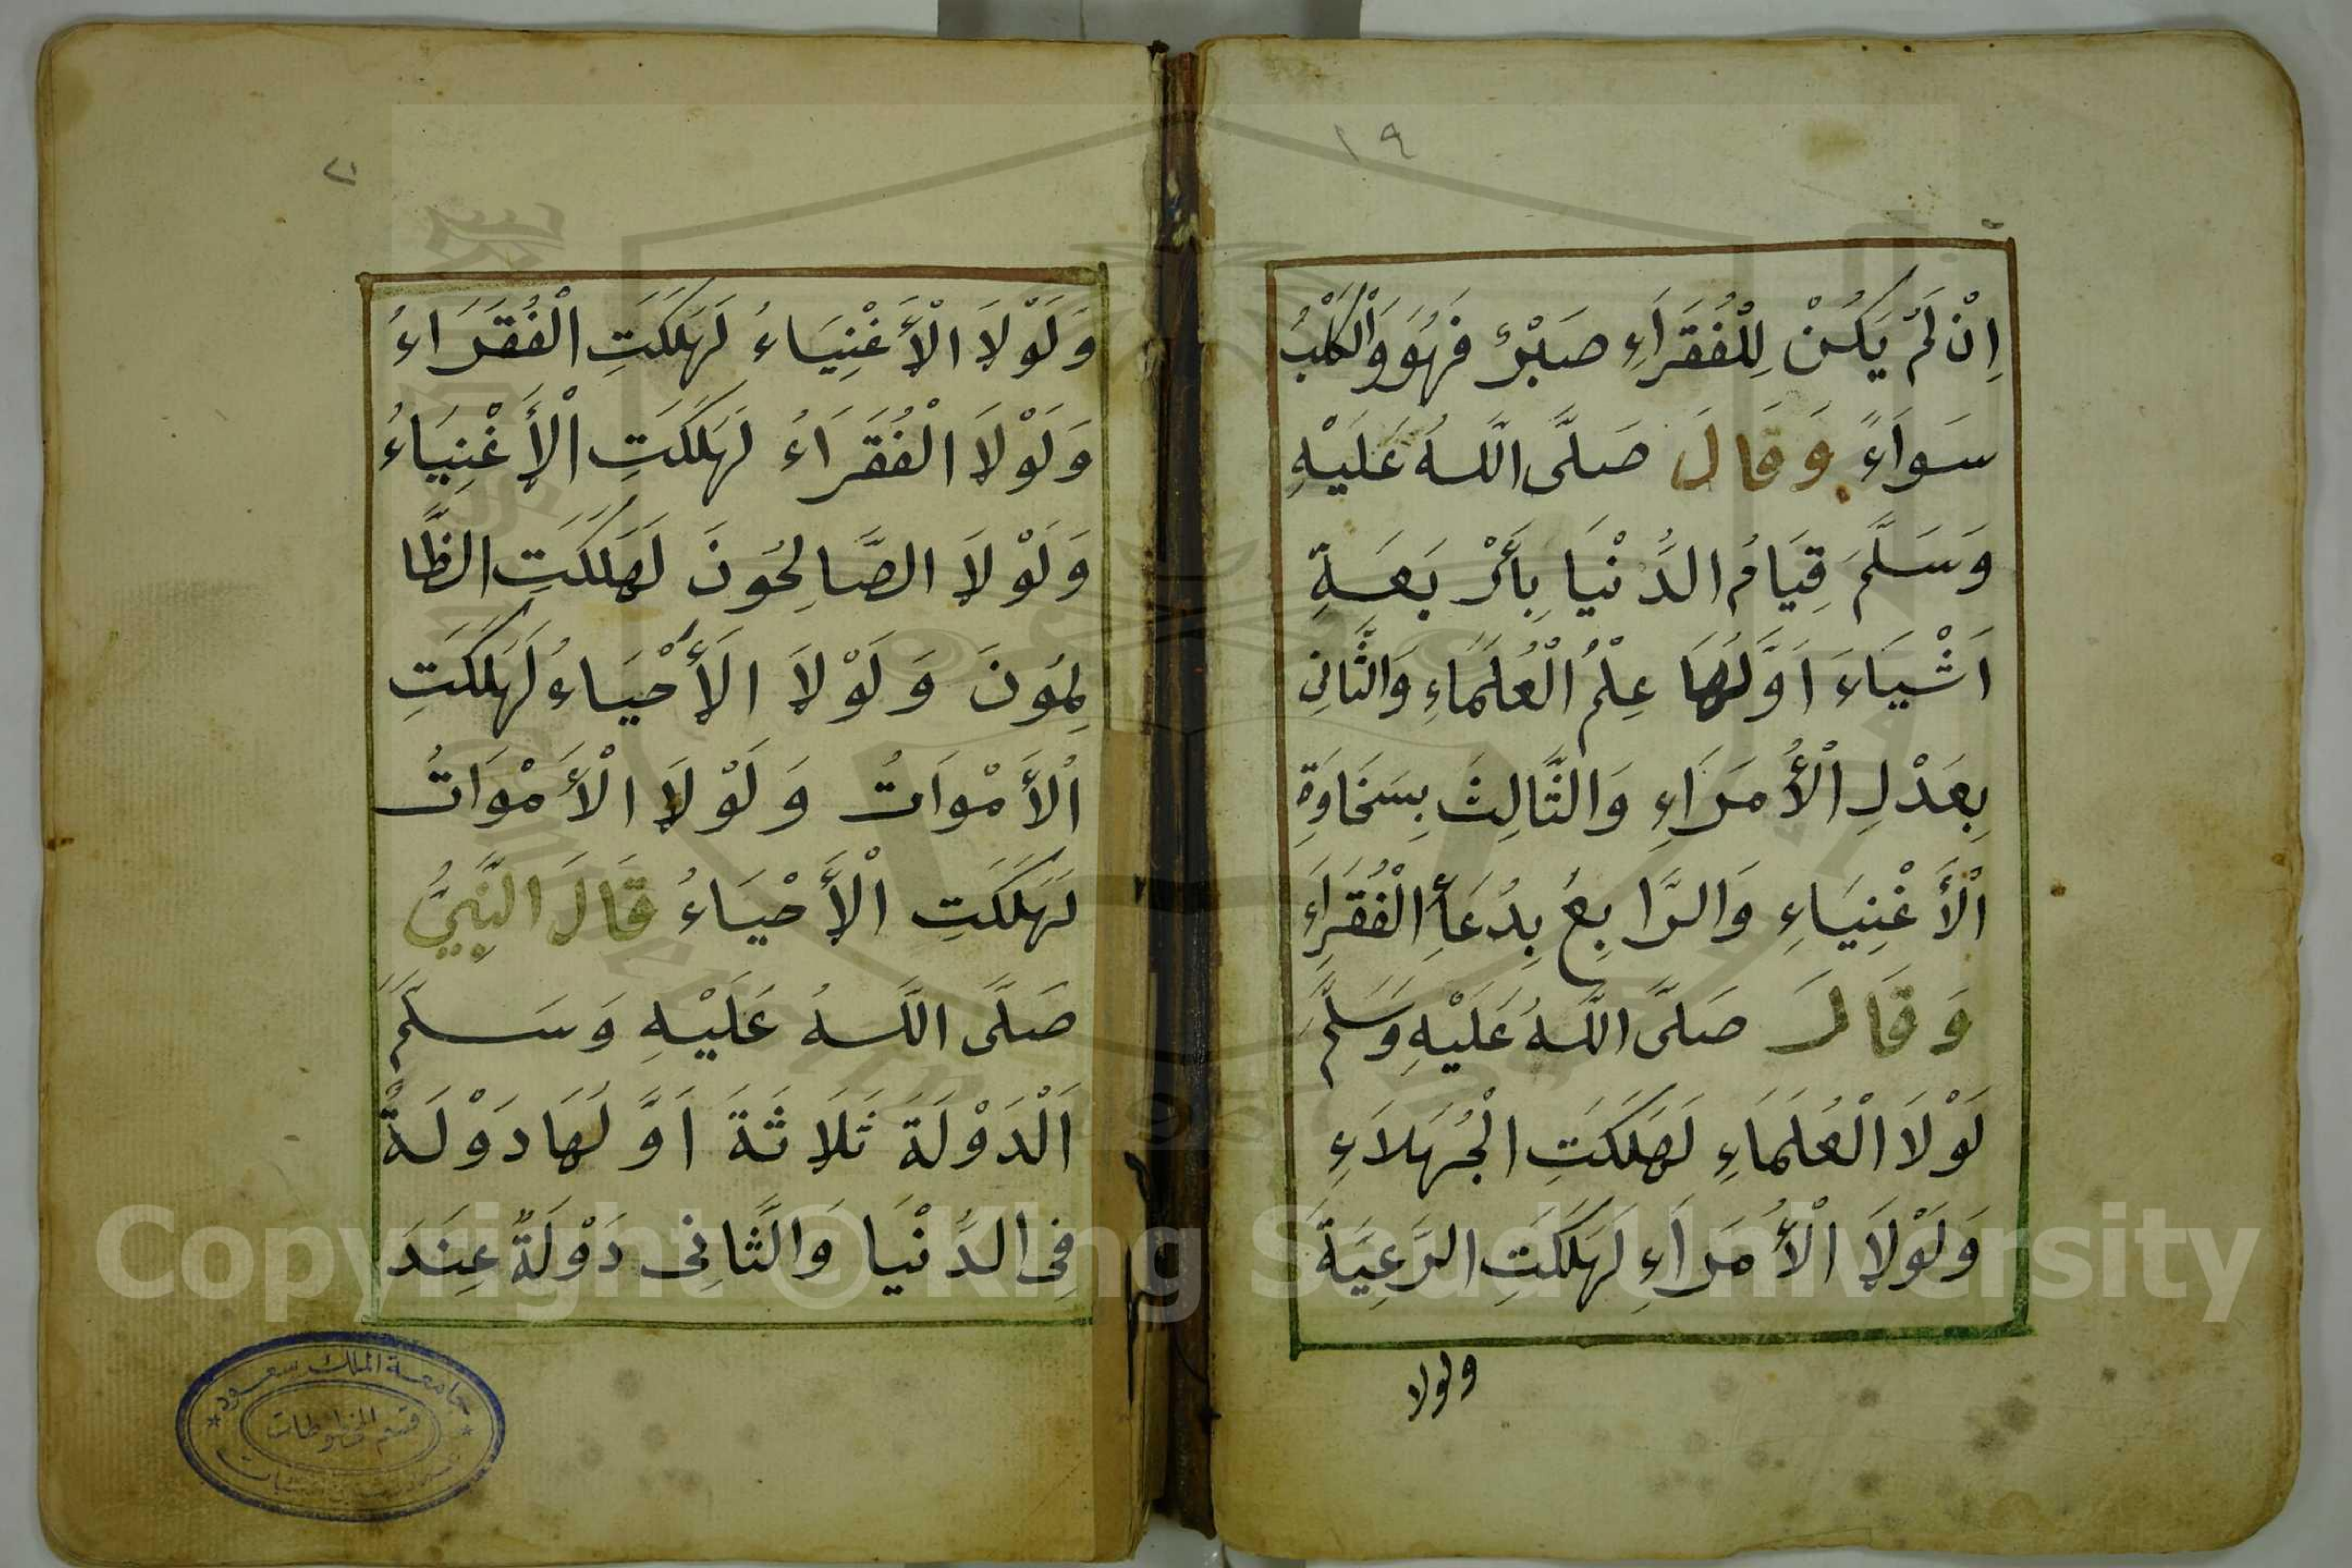 ١٩
اِنْ لَمْ يَكُنْ لِلْفُقَرَاءِ صَبْرٌ فَهُوَ وَالْكَلْبُ
سَوَاءً وَقَالَ صَلَّى اللَّهُ عَلَيْهِ
وَسَلَّمَ قِيَامُ الدُّنْيَا بِأَرْبَعَةِ
اَشْيَاءَ اَوَّلُهَا عِلْمُ الْعُلَمَاءِ وَالثَّانِى
بِعَدْلِ الْأُمَرَاءِ وَالثَّالِثَ بِسَخَاوَةِ
الْأَغْنِيَاءِ وَالرَّابِعُ بِدُعَأِ الْفُقَرَاءِ
وَقَالَ صَلَّى اللَّهُ عَلَيْهِ وَسَلَّمَ
لَوْلَا الْعُلَمَاءِ لَهَلَكَتِ الْجُهَلَاءِ
وَلَوْلَا الْأُمَرَاءِ لَهَلَكَتِ الرَّعِيَةَ
ولولا
وَلَوْلَا الْأَغْنِيَاءُ لَهَلَكَتِ الْفُقَرَاءُ
وَلَوْلَا الْفُقَرَاءُ لَهَلَكَتِ الْأَغْنِيَاءُ
وَلَوْلَا الصَّالِحُونَ لَهَلَكَتِ الظَّا
لِمُونَ وَلَوْلَا الْأَحْيَاءُ لَهَلَكَتِ
الْأَمْوَاتُ وَلَوْلَا الْأَمْوَاتُ
لَهَلَكَتِ الْأَحْيَاءُ قَالَ النَّبِيُّ
صَلَّى اللَّهُ عَلَيْهِ وَسَلَّمَ
اَلْدَوْلَةَ ثَلَاثَةَ اَوَّلُهَا دَوْلَةٌ
فِى الدُّنْيَا وَالثَّانِى دَوْلَةٌ عِنْدَ
جامعة الملك سعود
قسم المخطوطات
Copyright © King Saud University